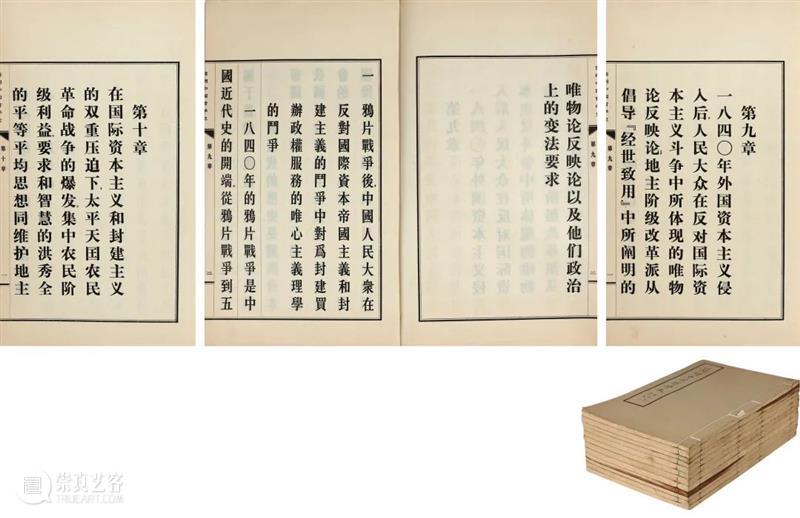 第九章
一八四〇年外国资本主义侵
入后,人民大众在反对国际资
本主义斗争中所体现的唯物
论反映论,地主阶级改革派从
倡导『经世致用』中所阐明的
第九章
一
唯物论反映论以及他们政治
上的变法要求
一 鴉片戰爭後,中國人民大衆在
反對國際資本帝國主義和封
建主義的鬥爭中對爲封建買
辦政權服務的唯心主義理學
的鬥爭
一八四〇年的鴉片戰爭是中
國近代史的開端,從鴉片戰爭到五
第九章
二
第十章
在国际资本主义和封建主义
的双重压迫下,太平天国农民
革命战争的爆发,集中农民阶
级利益要求和智慧的洪秀全
的平等平均思想同维护地主
第十章
一
崇真艺客
TRUEART.COM